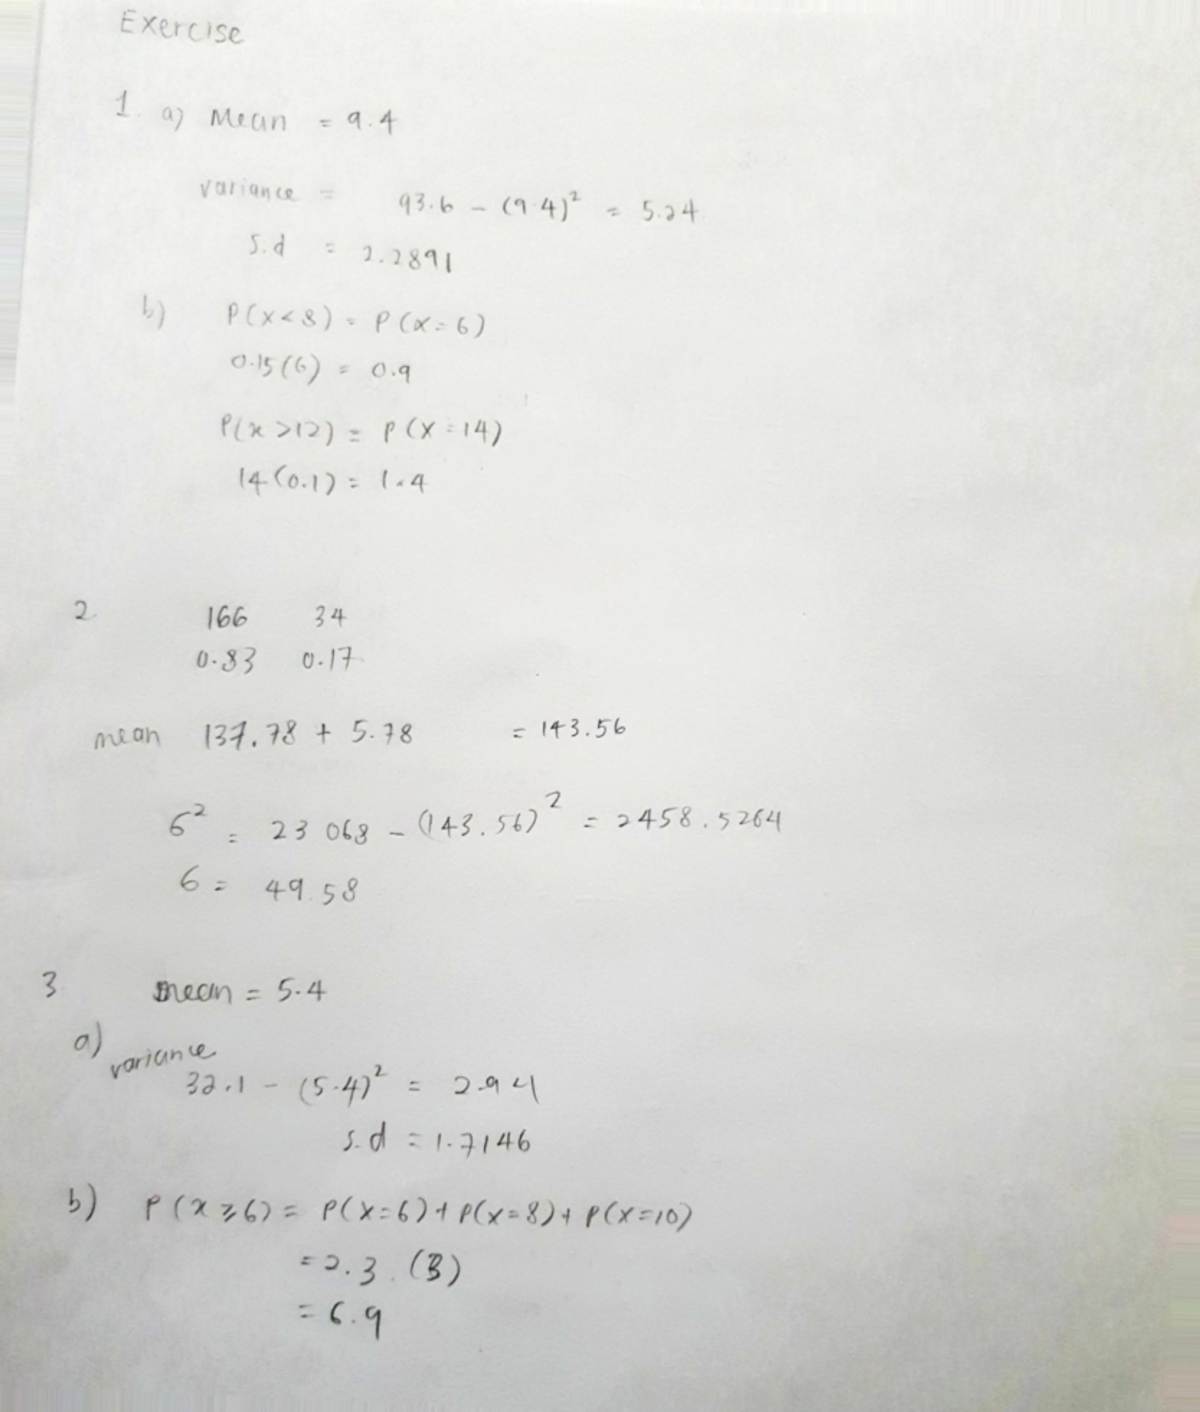 Exercise
1. a) Mean = 9.4
variance = 93.6 - (9.4)² = 5.24
S.d = 2.2891
b) P(x<8) = P(x=6)
0.15(6) = 0.9
P(x>12) = P(x=14)
14(0.1) = 1.4
2. 166 34
0.83 0.17
mean 137.78 + 5.78 = 143.56
6² = 23 068 - (143.56)² = 2458.5264
6 = 49.58
3 mean = 5.4
a) variance
32.1 - (5.4)² = 2.94
s.d = 1.7146
b) P(x≥6) = P(x=6) + P(x=8) + P(x=10)
= 2.3 . (3)
= 6.9